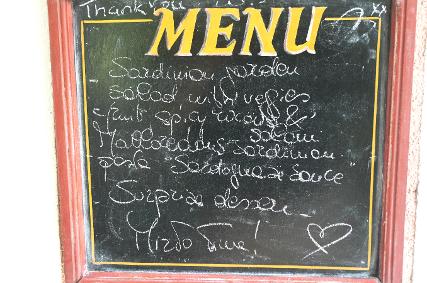 Thank you
xx
MENU
Sardinian garden
salad with veggies
fruit spicy &
salami
Malloreddus Sardinian
pasta "Sardegnase sauce"
Surprise dessert
Mirto Time!